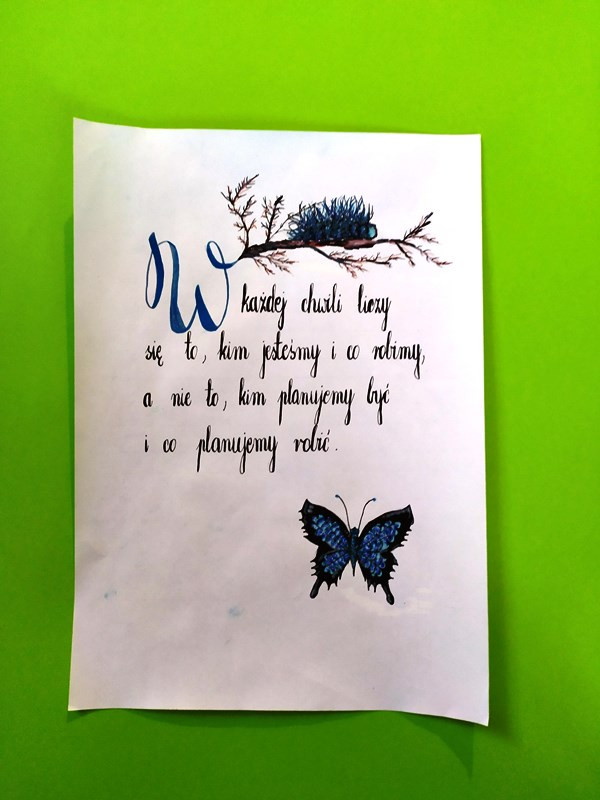 W każdej chwili liczy
się to, kim jesteśmy i co robimy,
a nie to, kim planujemy być
i co planujemy robić.